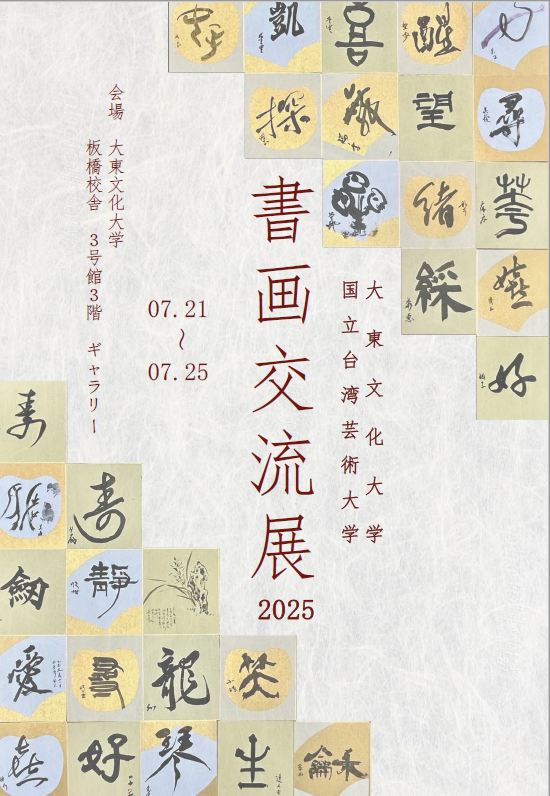 大東文化大学
国立台湾芸術大学
書画交流展
2025
07.21
〜
07.25
会場 大東文化大学
板橋校舎 3号館3階 ギャラリー
凱
喜
醒
探
望
尋
緒
綵
嬉
好
寿
寿
静
愛
龍
焚
喜
好
琴
生